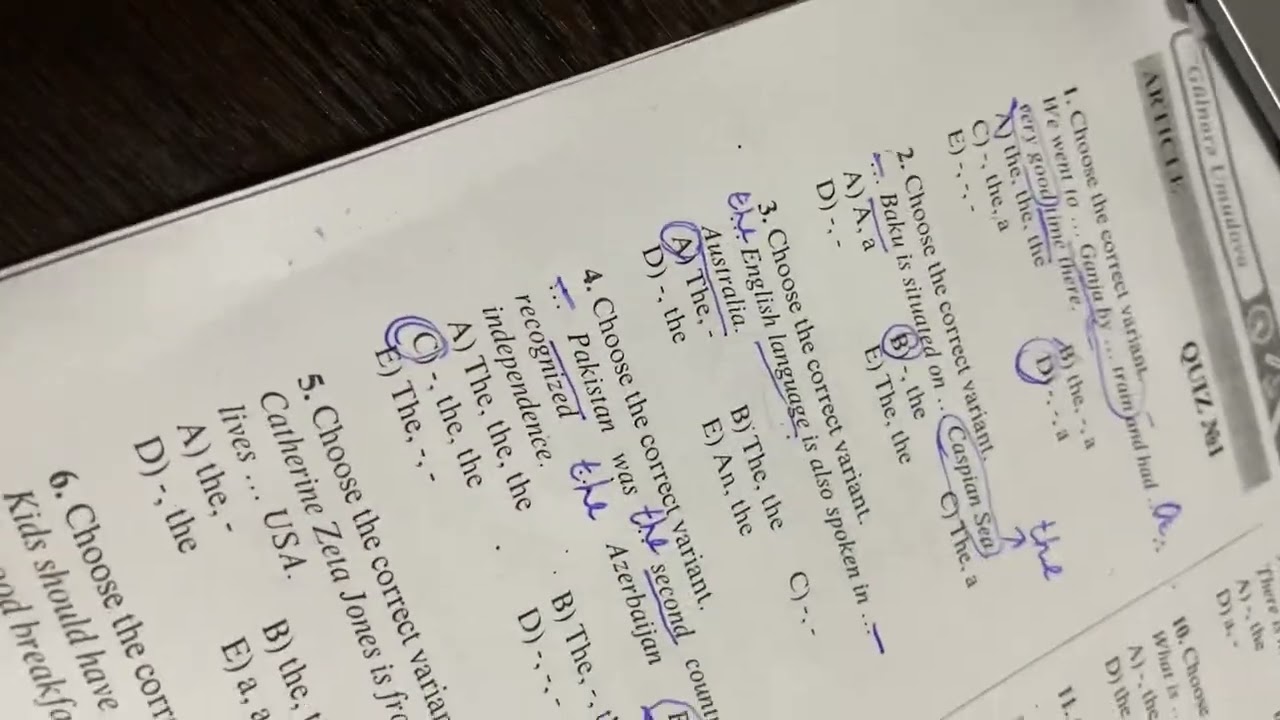 Gülnarə Umudova
ARTICLE
QUIZ №1
1. Choose the correct variant.
We went to ... Ganja by ... train and had ... a
very good time there.
A) the, the, the B) the, -, a
C) -, the, a D) -, -, a
E) -, -, -
2. Choose the correct variant.
... Baku is situated on ... Caspian Sea.
the
A) A, a B) -, the C) The, a
D) -, - E) The, the
3. Choose the correct variant.
the English language is also spoken in ...
Australia.
A) The, - B) The, the C) -, -
D) -, the E) An, the
4. Choose the correct variant.
... Pakistan was the second
recognized the Azerbaijan
independence.
A) The, the, the B) The, -,
C) -, the, the D) -, -, -
E) The, -, -
5. Choose the correct
Catherine Zeta Jones is
lives ... USA.
A) the, - B) the,
D) -, the E) a, a
6. Choose the
Kids should have
10. Choose
What is ..
A) -, the
D) the
11.
A) -, the
D) a, -